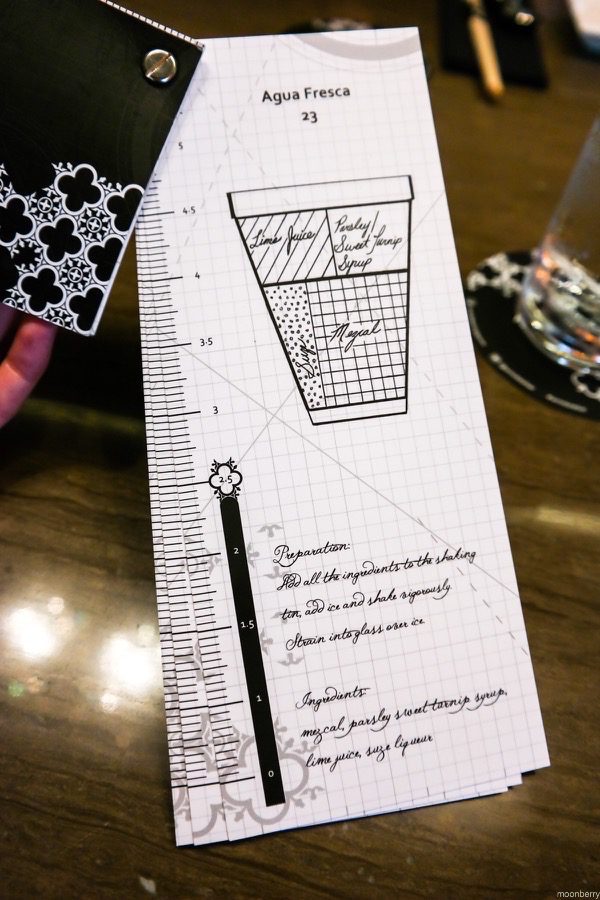 Agua Fresca
23
5
4.5
4
3.5
3
2.5
2
1.5
1
0
Lime Juice
Parsley/
Sweet Turnip
Syrup
Suze
Mezcal
Preparation:
Add all the ingredients to the shaking
tin, add ice and shake vigorously.
Strain into glass over ice
Ingredients:
mezcal, parsley sweet turnip syrup,
lime juice, suze liqueur
moonberry